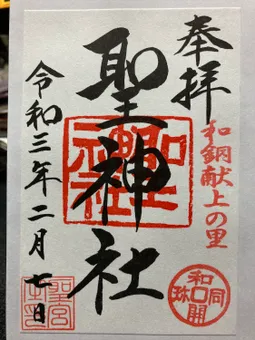 奉拝
和銅献上の里
聖神社
令和三年二月七日
聖神社
和同開珎